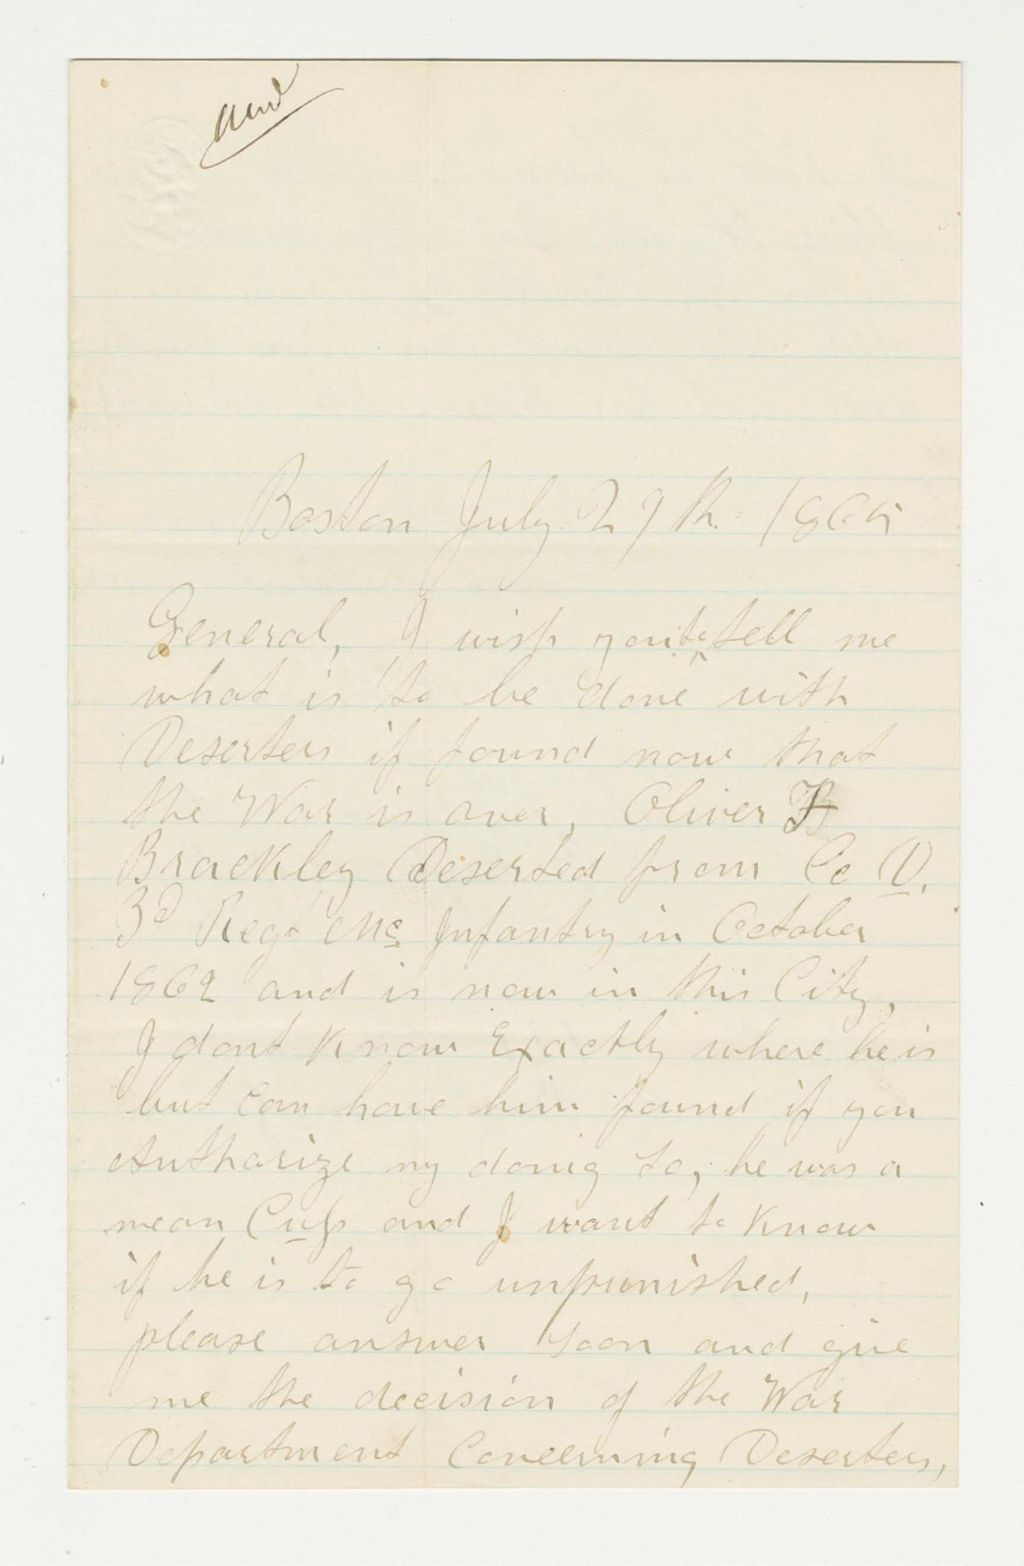 Boston July 29th. 1865
General, I wish you to tell me
what is to be done with
Deserters if found now that
the War is over, Oliver B
Brackley Deserted from Co D.
3d Regt Me Infantry in October
1862 and is now in this City,
I dont Know Exactly where he is
but can have him found if you
Authorize my doing so, he was a
mean Cuss and I want to Know
if he is to go unpunished,
please answer soon and give
me the decision of the War
Department Concerning Deserters,